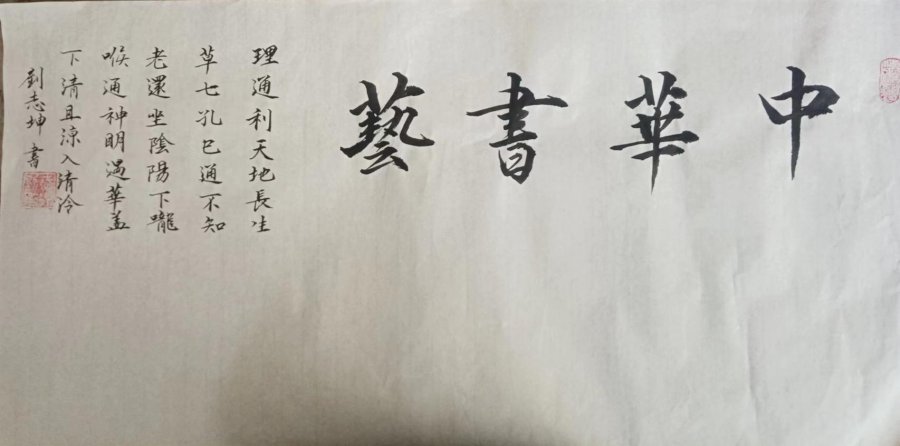 中華書藝
理通利天地長生
草七孔已通不知
老還坐陰陽下嚨
喉通神明過華盖
下清且涼入清冷
劉志坤書